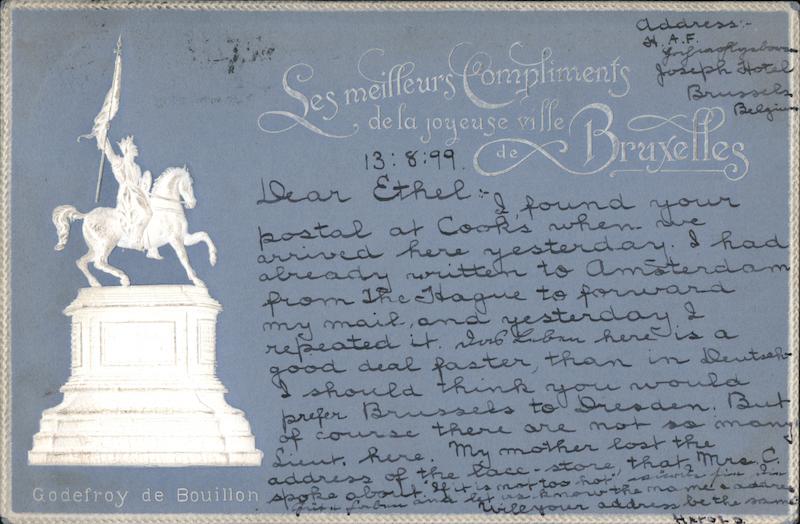 Address:-
H. A. F.
Joseph Hotel
Brussels
Belgium
Les meilleurs Compliments
de la joyeuse ville
de Bruxelles
13:8:99.
Dear Ethel:- I found your
postal at Cook's when we
arrived here yesterday. I had
already written to Amsterdam
from The Hague to forward
my mail, and yesterday I
repeated it. here is a
good deal faster, than in Deutsch-
I should think you would
prefer Brussels to Dresden. But
of course there are not so many
Lieut. here. My mother lost the
address of the lace-store, that Mrs. C.
spoke about. If it is not too hot,
and let us know the name & address
Will your address be the same
Harold.
Godefroy de Bouillon